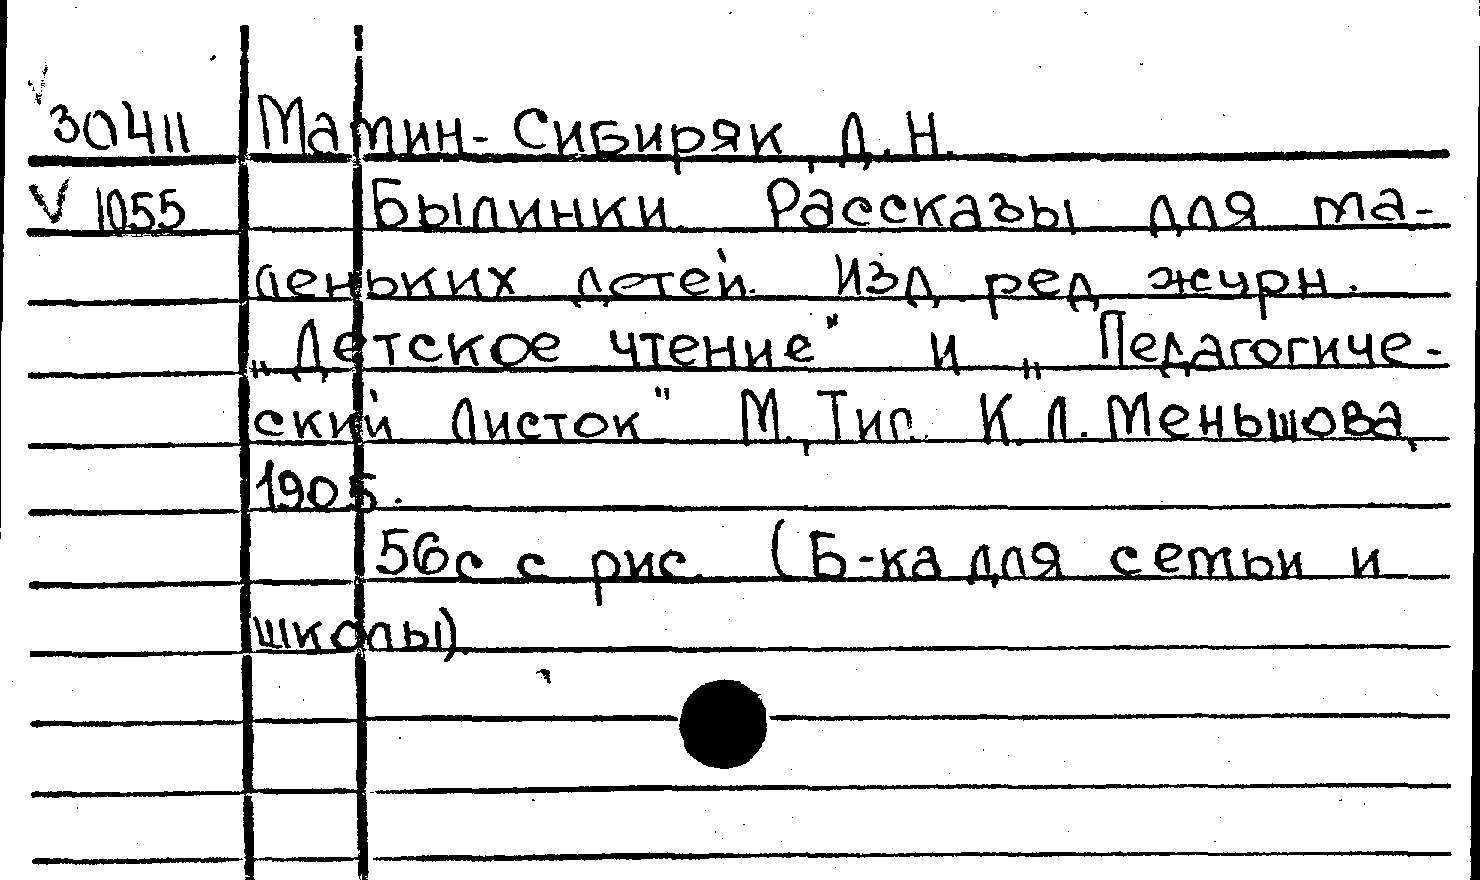 30411 Мамин-Сибиряк, Д. Н.
V 1055 Былинки. Рассказы для ма-
леньких детей. Изд. ред. журн.
„Детское чтение" и „Педагогиче-
ский листок" М., Тип. К. Л. Меньшова,
1905.
56с. с рис. (Б-ка для семьи и
школы).